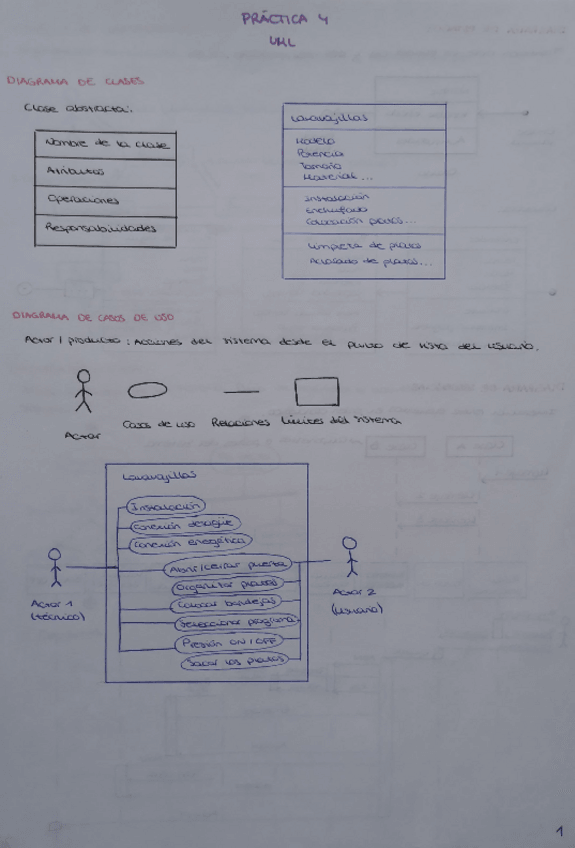 PRÁCTICA 4
UML
DIAGRAMA DE CLASES
Clase abstracta:
Nombre de la clase
Atributos
Operaciones
Responsabilidades
Lavavajillas
Modelo
Potencia
Tamaño
Material...
Instalación
Enchufado
Colocación platos...
Limpieza de platos
Aclarado de platos...
DIAGRAMA DE CASOS DE USO
Actor / producto: Acciones del sistema desde el punto de vista del usuario.
Actor
Casos de uso
Relaciones
Límites del sistema
Lavavajillas
Instalación
Conexión desagüe
Conexión energética
Abrir/cerrar puerta
Organizar platos
Colocar bandejas
Seleccionar programa
Presión ON/OFF
Sacar los platos
Actor 1
(técnico)
Actor 2
(usuario)
1